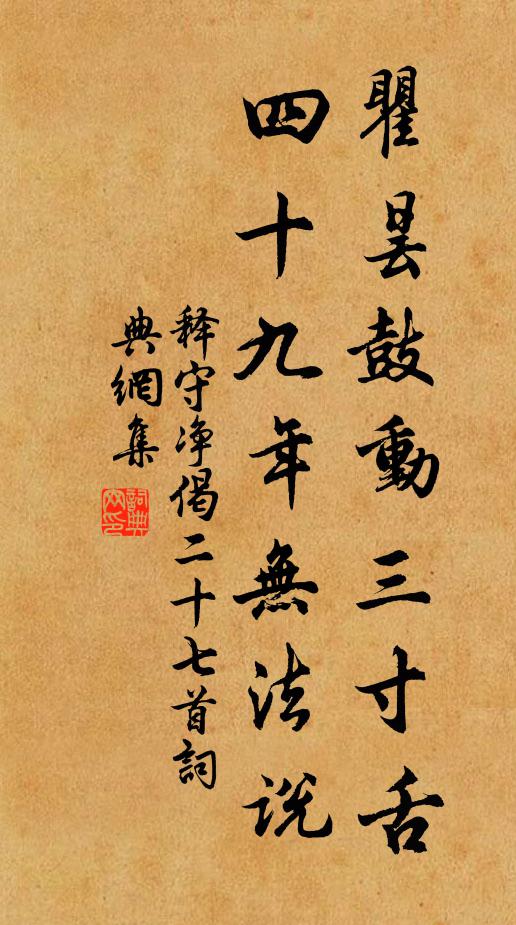 瞿昙鼓動三寸舌
四十九年無法説
释守净偈二十七首詞
典網集
詞典網印